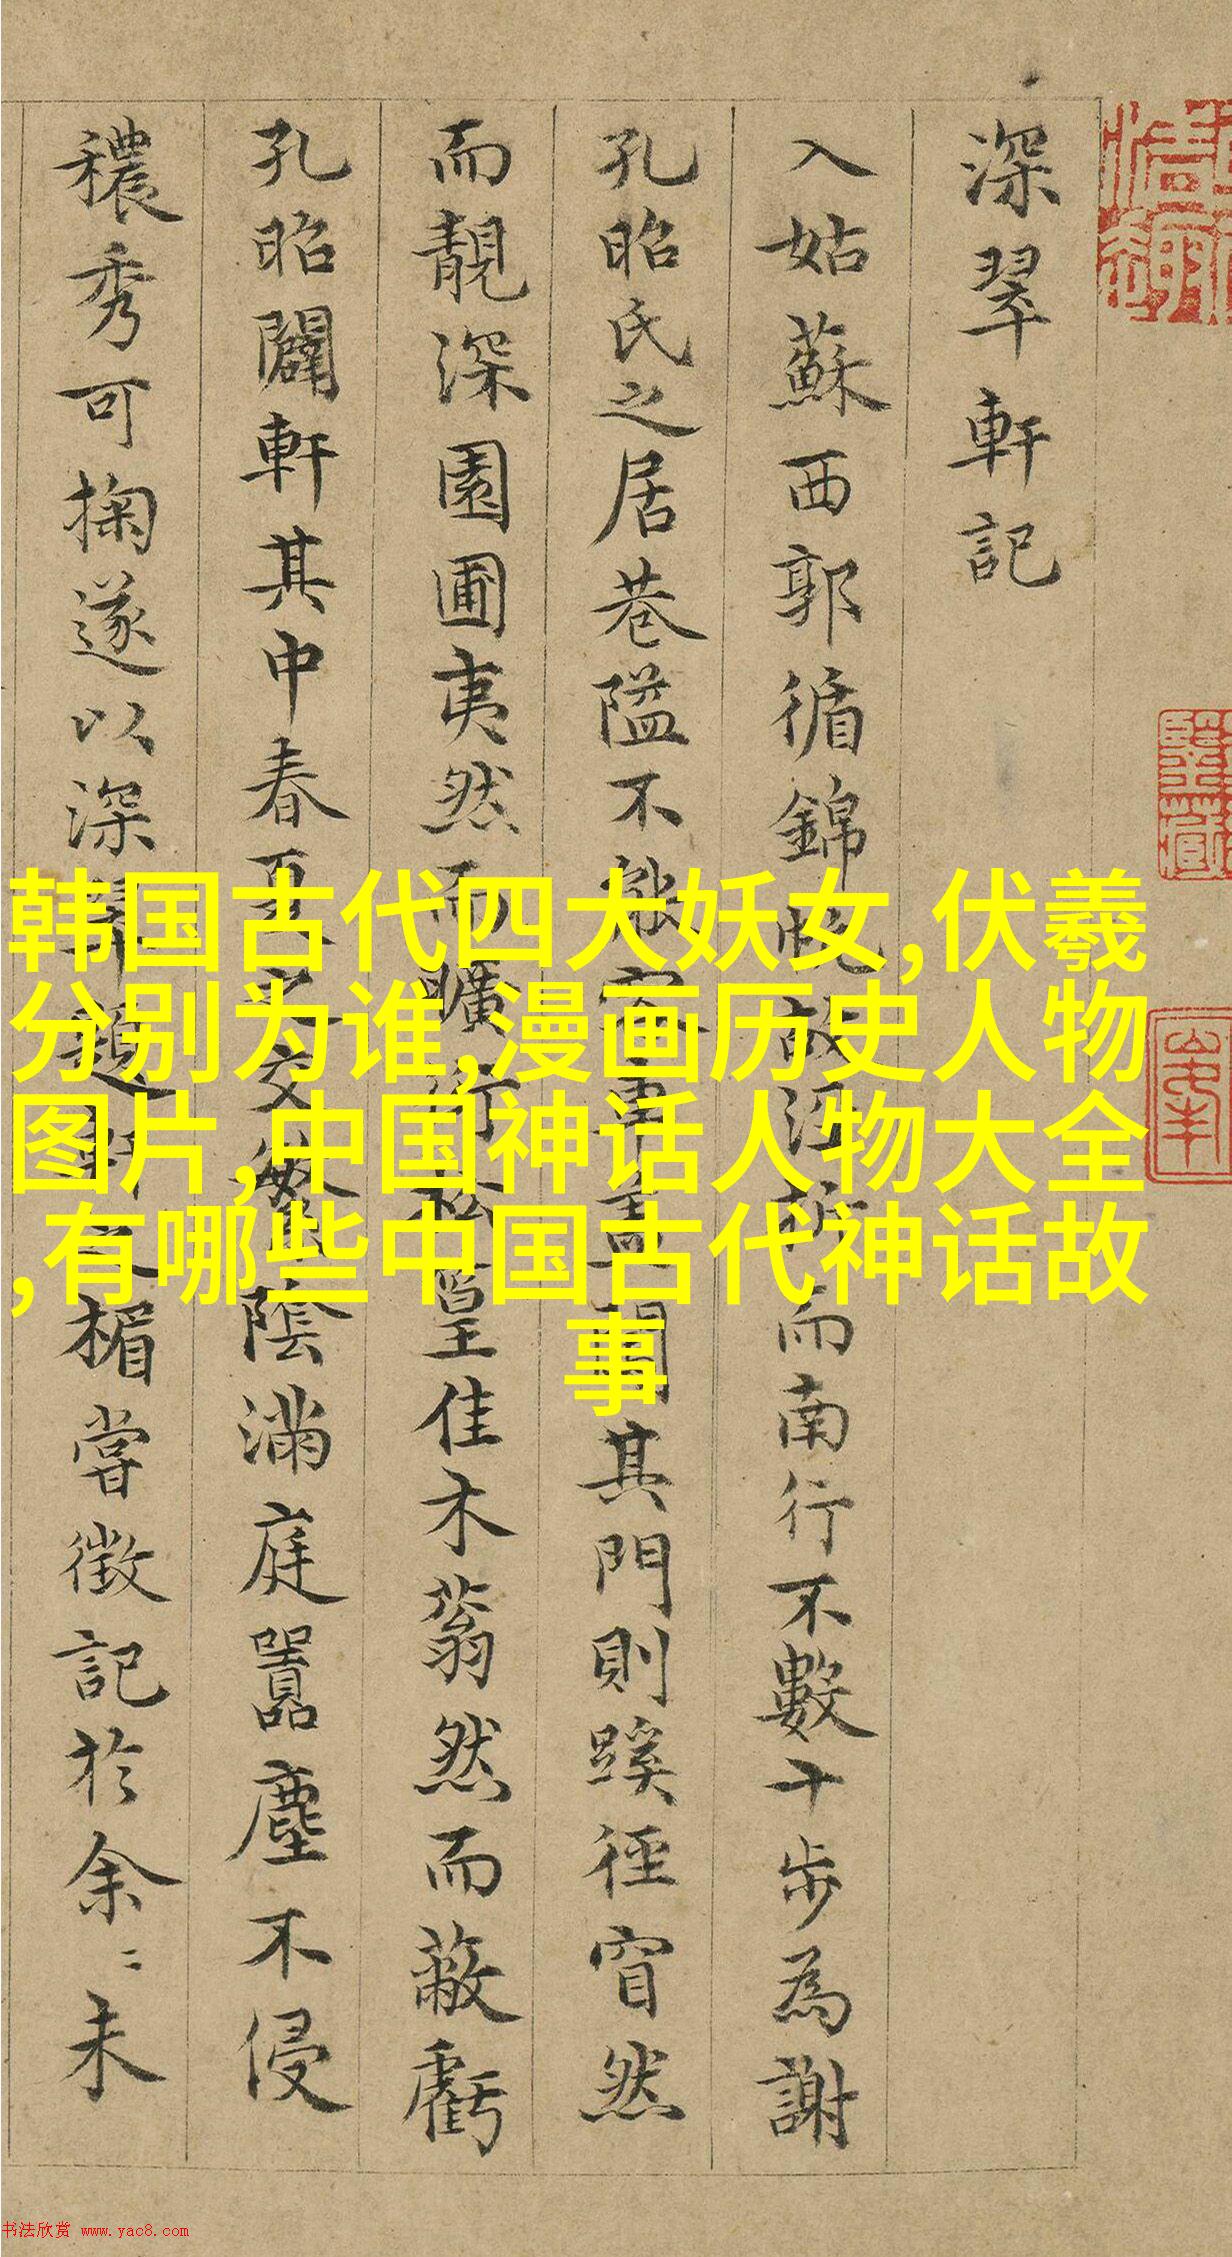 深翠軒記
入姑蘇西郭循錦帆故涇折而南行不數十步為謝
孔昭氏之居巷隘不能容車蓋開其門則蹊徑窅然
而靚深園圃夷然而曠竹松篁佳木蓊然而蔽虧
孔昭闢軒其中春夏之交繁陰滿庭囂塵不侵
穠秀可掬遂以深翠題其楣嘗徵記於余〻未
韩国古代四大妖女,伏羲
分别为谁,漫画历史人物
图片,中国神话人物大全
,有哪些中国古代神话故
事
书法欣赏 www.yac8.com